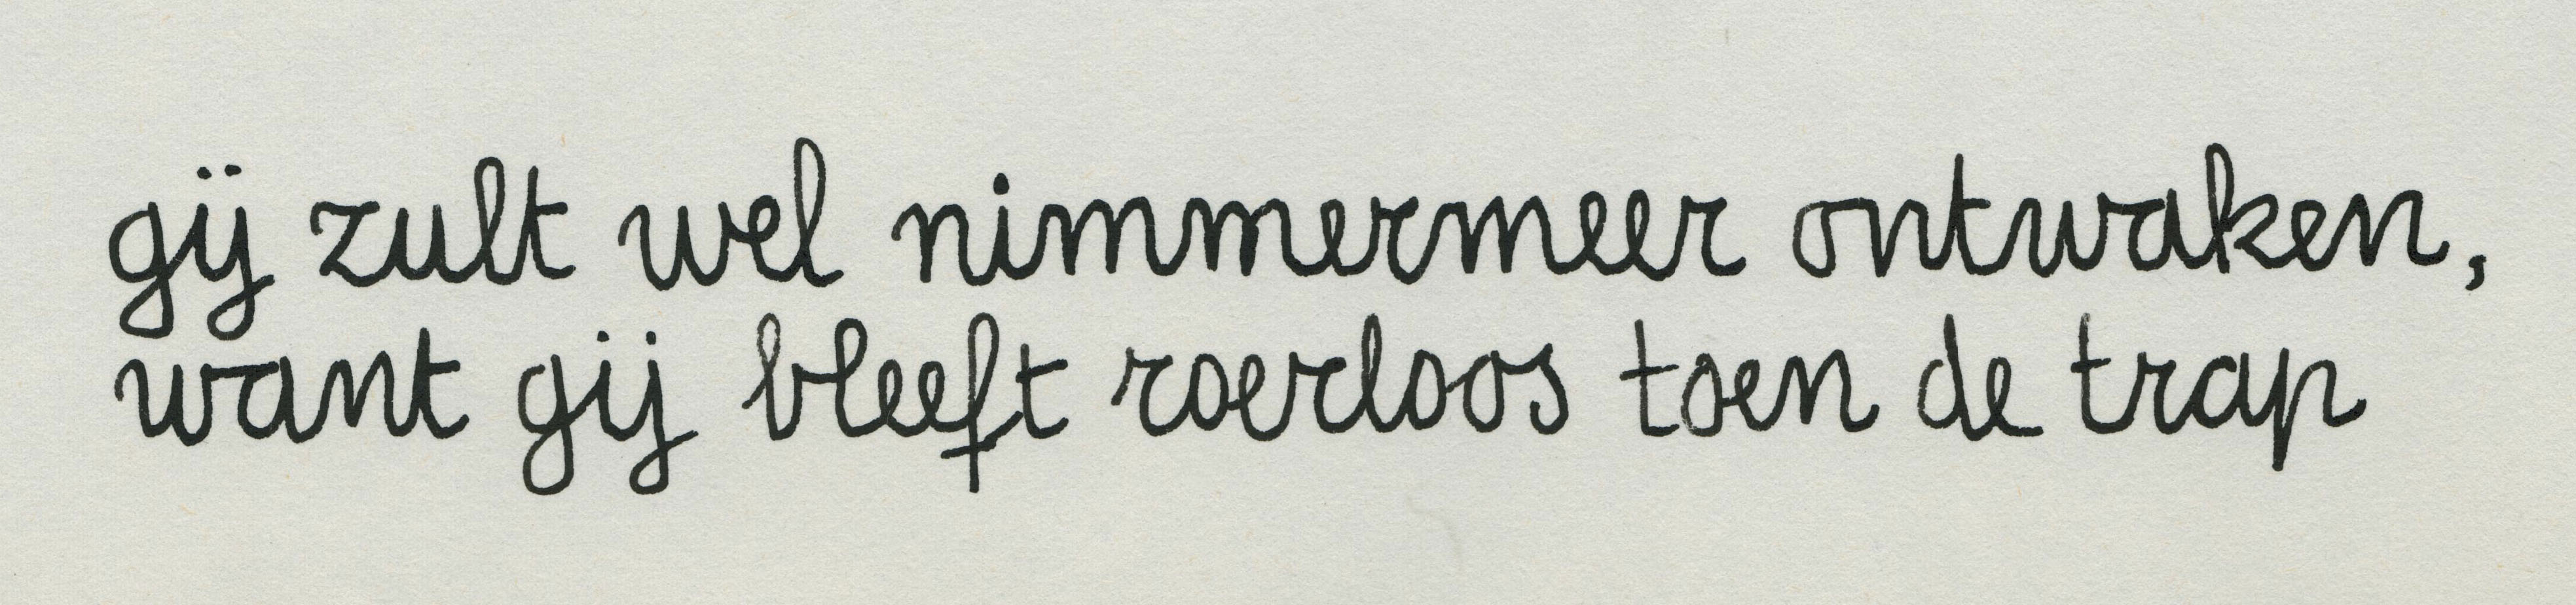 gij zult wel nimmermeer ontwaken,
want gij bleeft roerloos toen de trap